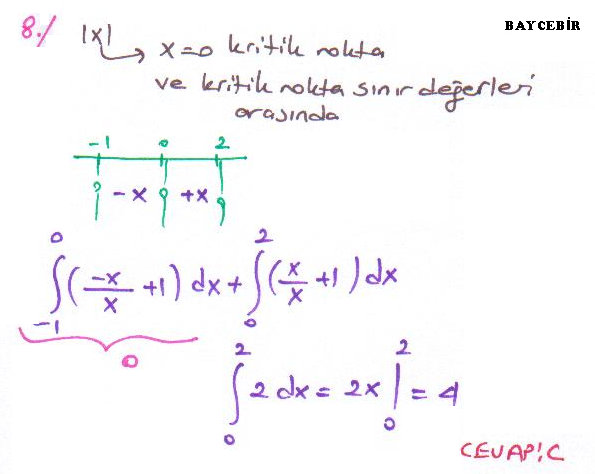 BAYCEBİR
8./ |x| → x=0 kritik nokta
ve kritik nokta sınır değerleri
arasında
-1 0 2
-x +x
∫₋₁⁰ (-x/x +1) dx + ∫₀² (x/x +1) dx
0
∫₀² 2 dx = 2x |₀² = 4
CEVAP: C